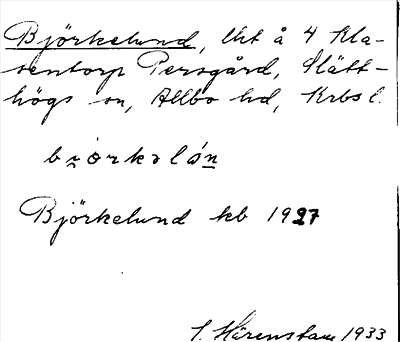 Björkelund, lht å 4 Kla-
sentorp Persgård, Slätt-
högs sn, Allbo hd, Krbs l.
björkəlún
Björkelund kb 1927
S. Härenstam 1933